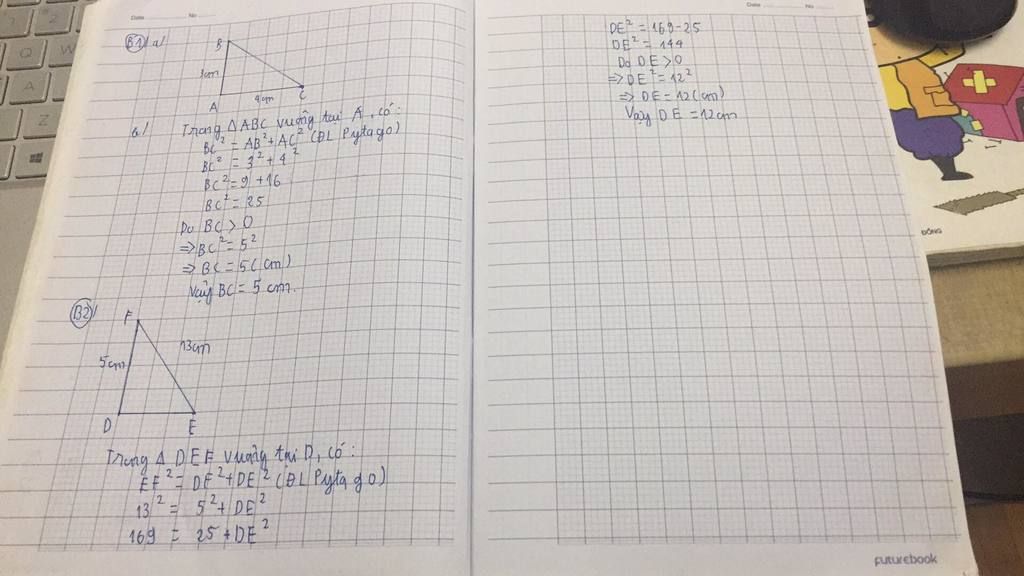 Date No
B1/ a/
B
3cm
A
4cm
C
a/ Trong ΔABC vuông tại A, có:
BC² = AB² + AC² (ĐL Pytago)
BC² = 3² + 4²
BC² = 9 + 16
BC² = 25
Do BC > 0
⇒ BC² = 5²
⇒ BC = 5 (cm)
Vậy BC = 5 cm.
B2/
F
5cm
13cm
D
E
Trong Δ DEF vuông tại D, có:
EF² = DF² + DE² (ĐL Pytago)
13² = 5² + DE²
169 = 25 + DE²
Date No
DE² = 169 - 25
DE² = 144
Do DE > 0
⇒ DE² = 12²
⇒ DE = 12 (cm)
Vậy DE = 12cm
futurebook
ĐỒNG
Q
W
A
Z